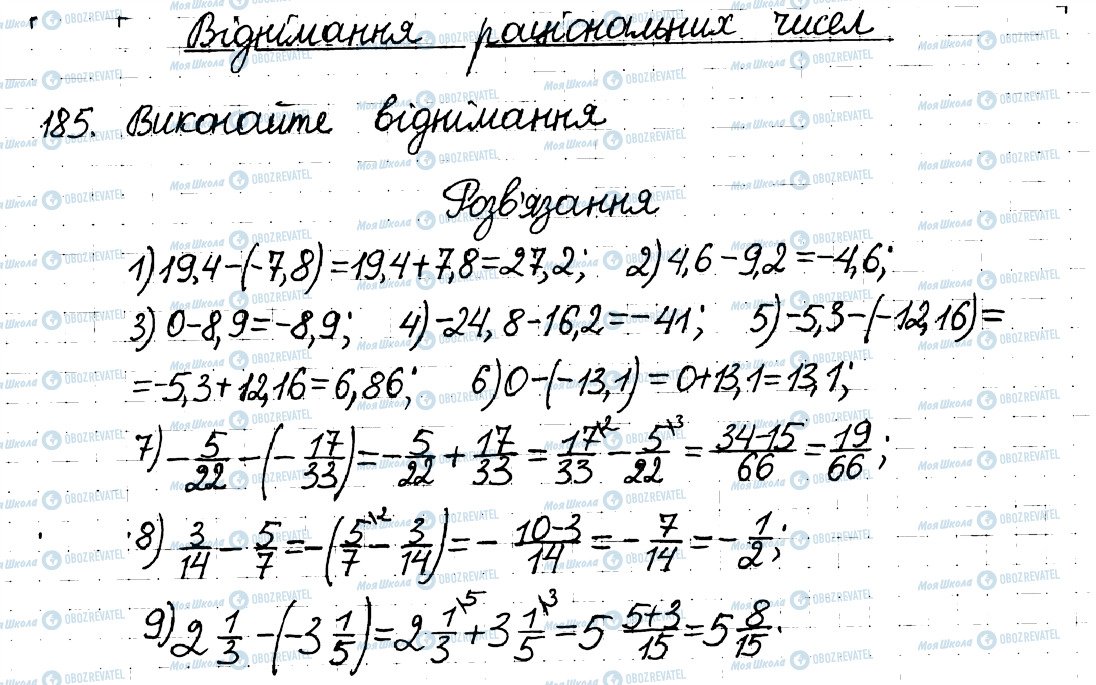 Віднімання раціональних чисел
185. Виконайте віднімання
Розв'язання
1) 19,4-(-7,8)=19,4+7,8=27,2; 2) 4,6-9,2=-4,6;
3) 0-8,9=-8,9; 4) -24,8-16,2=-41; 5) -5,3-(-12,16)=
=-5,3+12,16=6,86; 6) 0-(-13,1)=0+13,1=13,1;
7) -5/22-(-17/33)=-5/22+17/33=17\2/33-5\3/22=34-15/66=19/66;
8) 3/14-5/7=-(5\2/7-3/14)=-10-3/14=-7/14=-1/2;
9) 2 1/3-(-3 1/5)=2 1\5/3+3 1\3/5=5 5+3/15=5 8/15.
МояШкола OBOZREVATEL